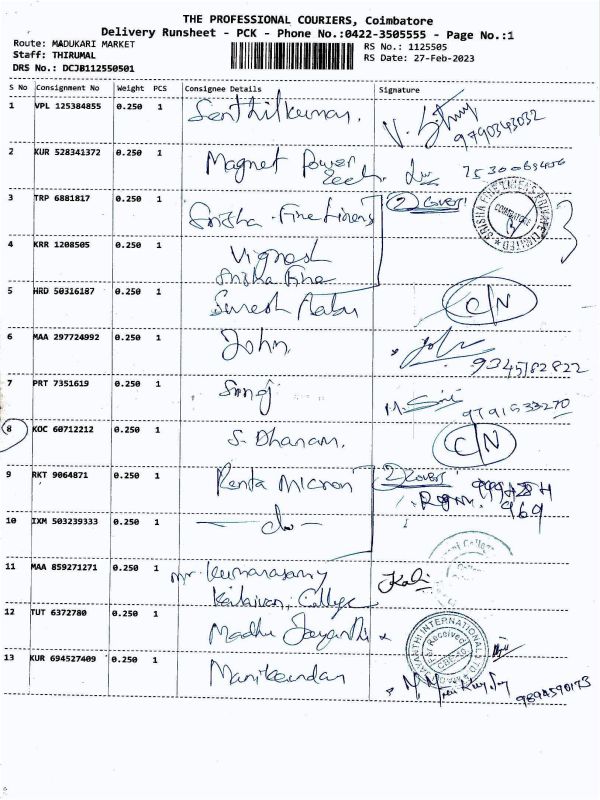 THE PROFESSIONAL COURIERS, Coimbatore
Delivery Runsheet - PCK - Phone No.:0422-3505555 - Page No.:1
Route: MADUKARI MARKET
Staff: THIRUMAL
DRS No.: DCJB112550501
RS No.: 1125505
RS Date: 27-Feb-2023
S No Consignment No Weight PCS Consignee Details Signature
1 VPL 125384855 0.250 1 Senthilkumar. 9790343032
2 KUR 528341372 0.250 1 Magnet Power
3 TRP 6881817 0.250 1 Srisha Fine Linens 2 Cover
SRISHA FINE LINENS PRIVATE LIMITED COIMBATORE
4 KRR 1208505 0.250 1 Vignesh
Srisha Fine
5 HRD 50316187 0.250 1 Suresh Babu C/N
6 MAA 297724992 0.250 1 John. John 9345182822
7 PRT 7351619 0.250 1 9791533270
8 KOC 60712212 0.250 1 S. Dhanam. C/N
9 RKT 9064871 0.250 1 Renta Micron 2 Covers
969
10 IXM 503239333 0.250 1 - do -
11 MAA 859271271 0.250 1 mr Kumarasamy
College
12 TUT 6372780 0.250 1 Madhu Jayanthi
JAYANTHI INTERNATIONAL
For Received
13 KUR 694527409 0.250 1 Manikandan
9894590173